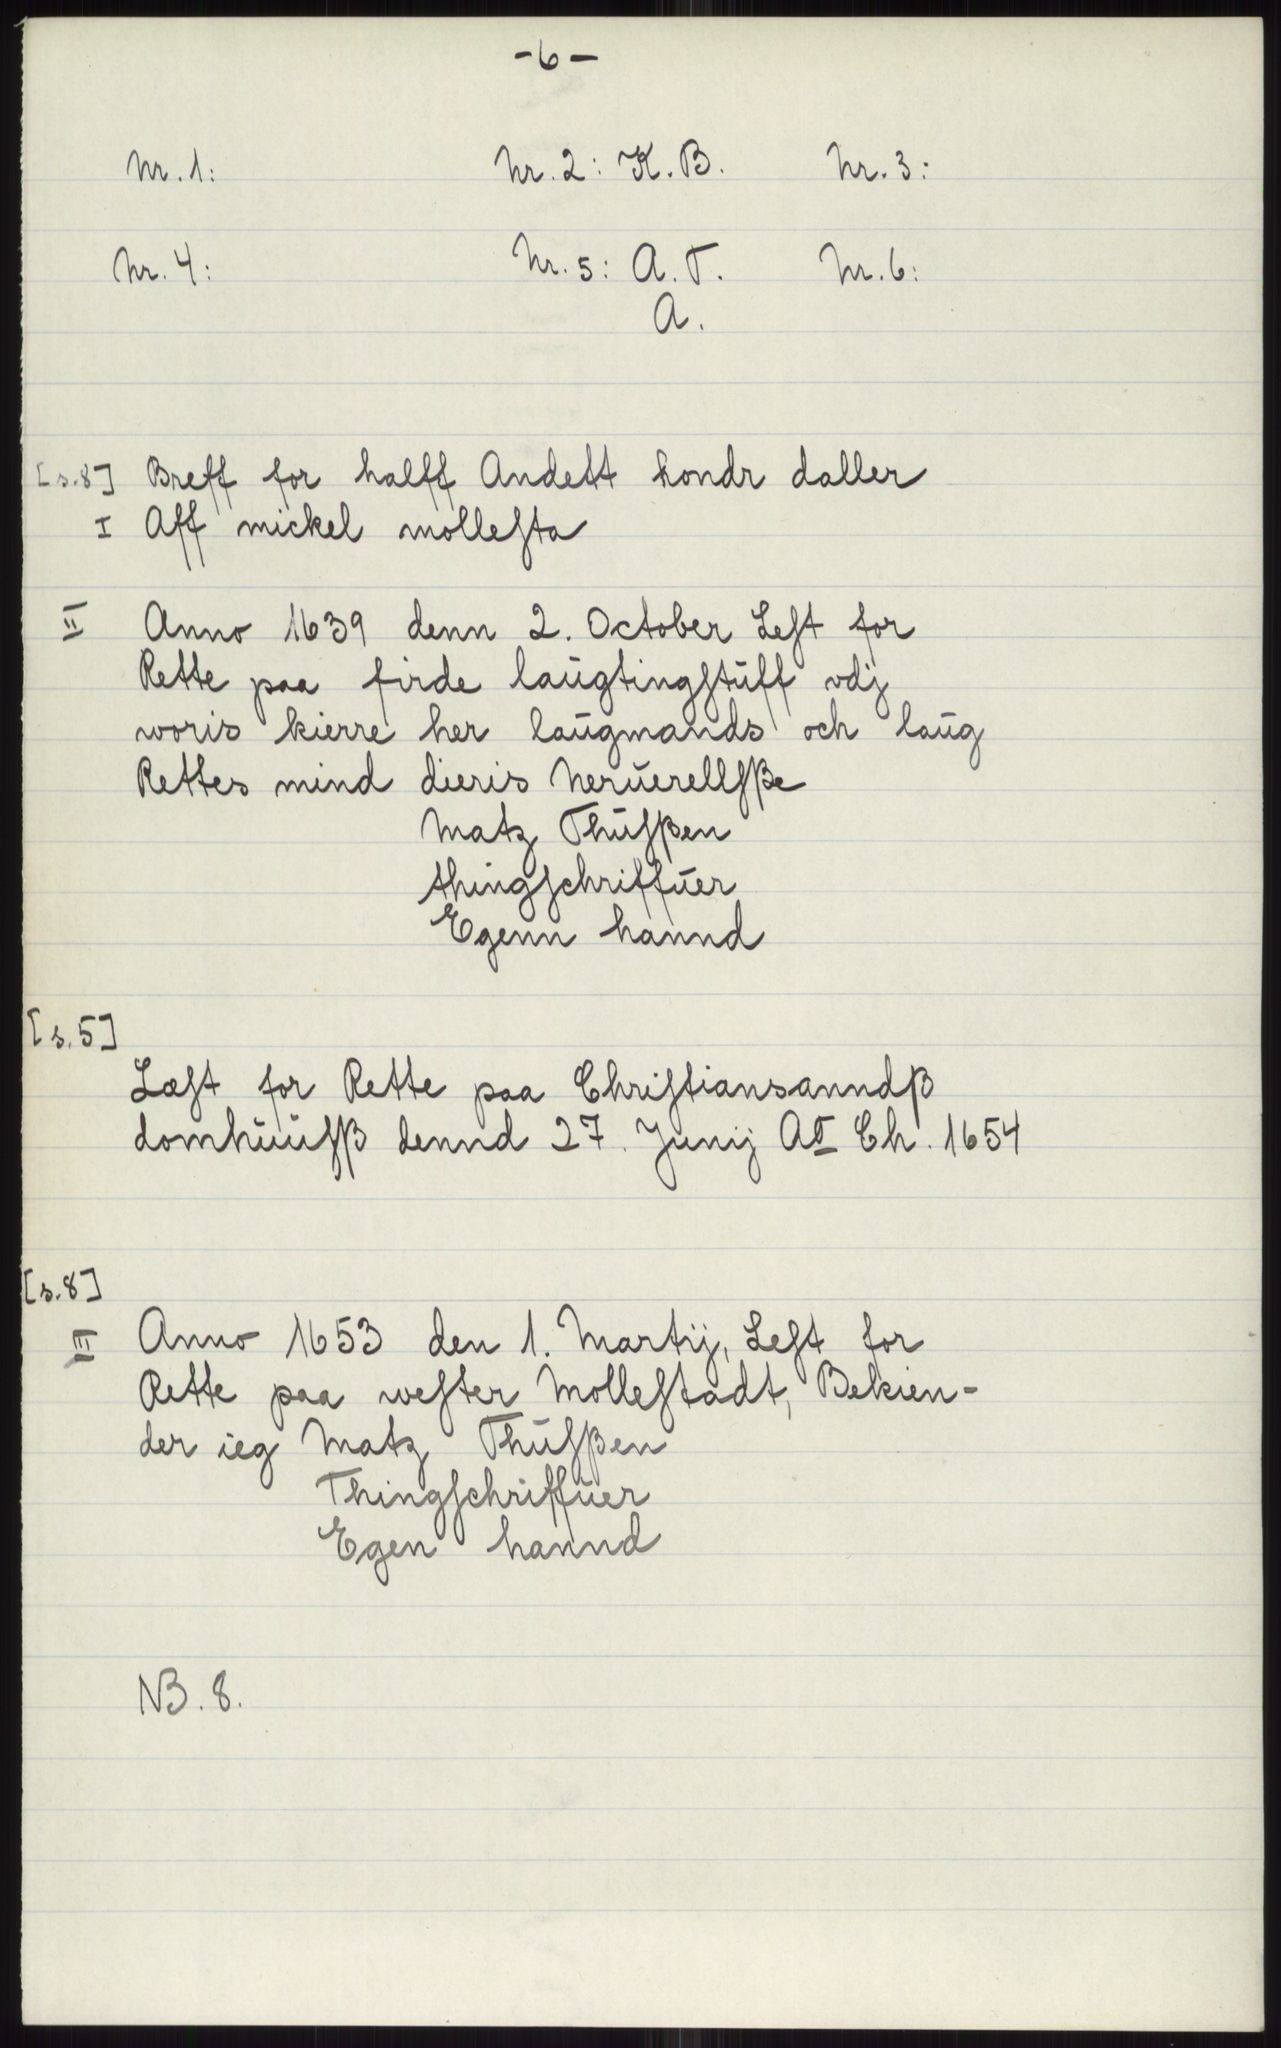 -6-
Nr. 1: Nr. 2: K. B. Nr. 3:
Nr. 4: Nr. 5: A. T. Nr. 6:
A.
[s.8] Breff for halff Andett hondr daller
I Aff mickel mollesta
II Anno 1639 denn 2. October Lest for
Rette paa firde laŭgtingstŭff vdj
woris kierre her laŭgmands och laŭg
Rettes mind dieris nerŭerellsße
Matz Thŭsßen
thingschriffŭer
Egenn hannd
[s.5]
Læst for Rette paa Christiansanndß
domhŭŭsß dennd 27. Junij Ao Ch. 1654
[s.8]
III Anno 1653 den 1. Martij, Lest for
Rette paa wester Mollestadt, Bekien-
der ieg Matz Thŭsßen
Thingschriffŭer
Egen hannd
NB. 8.